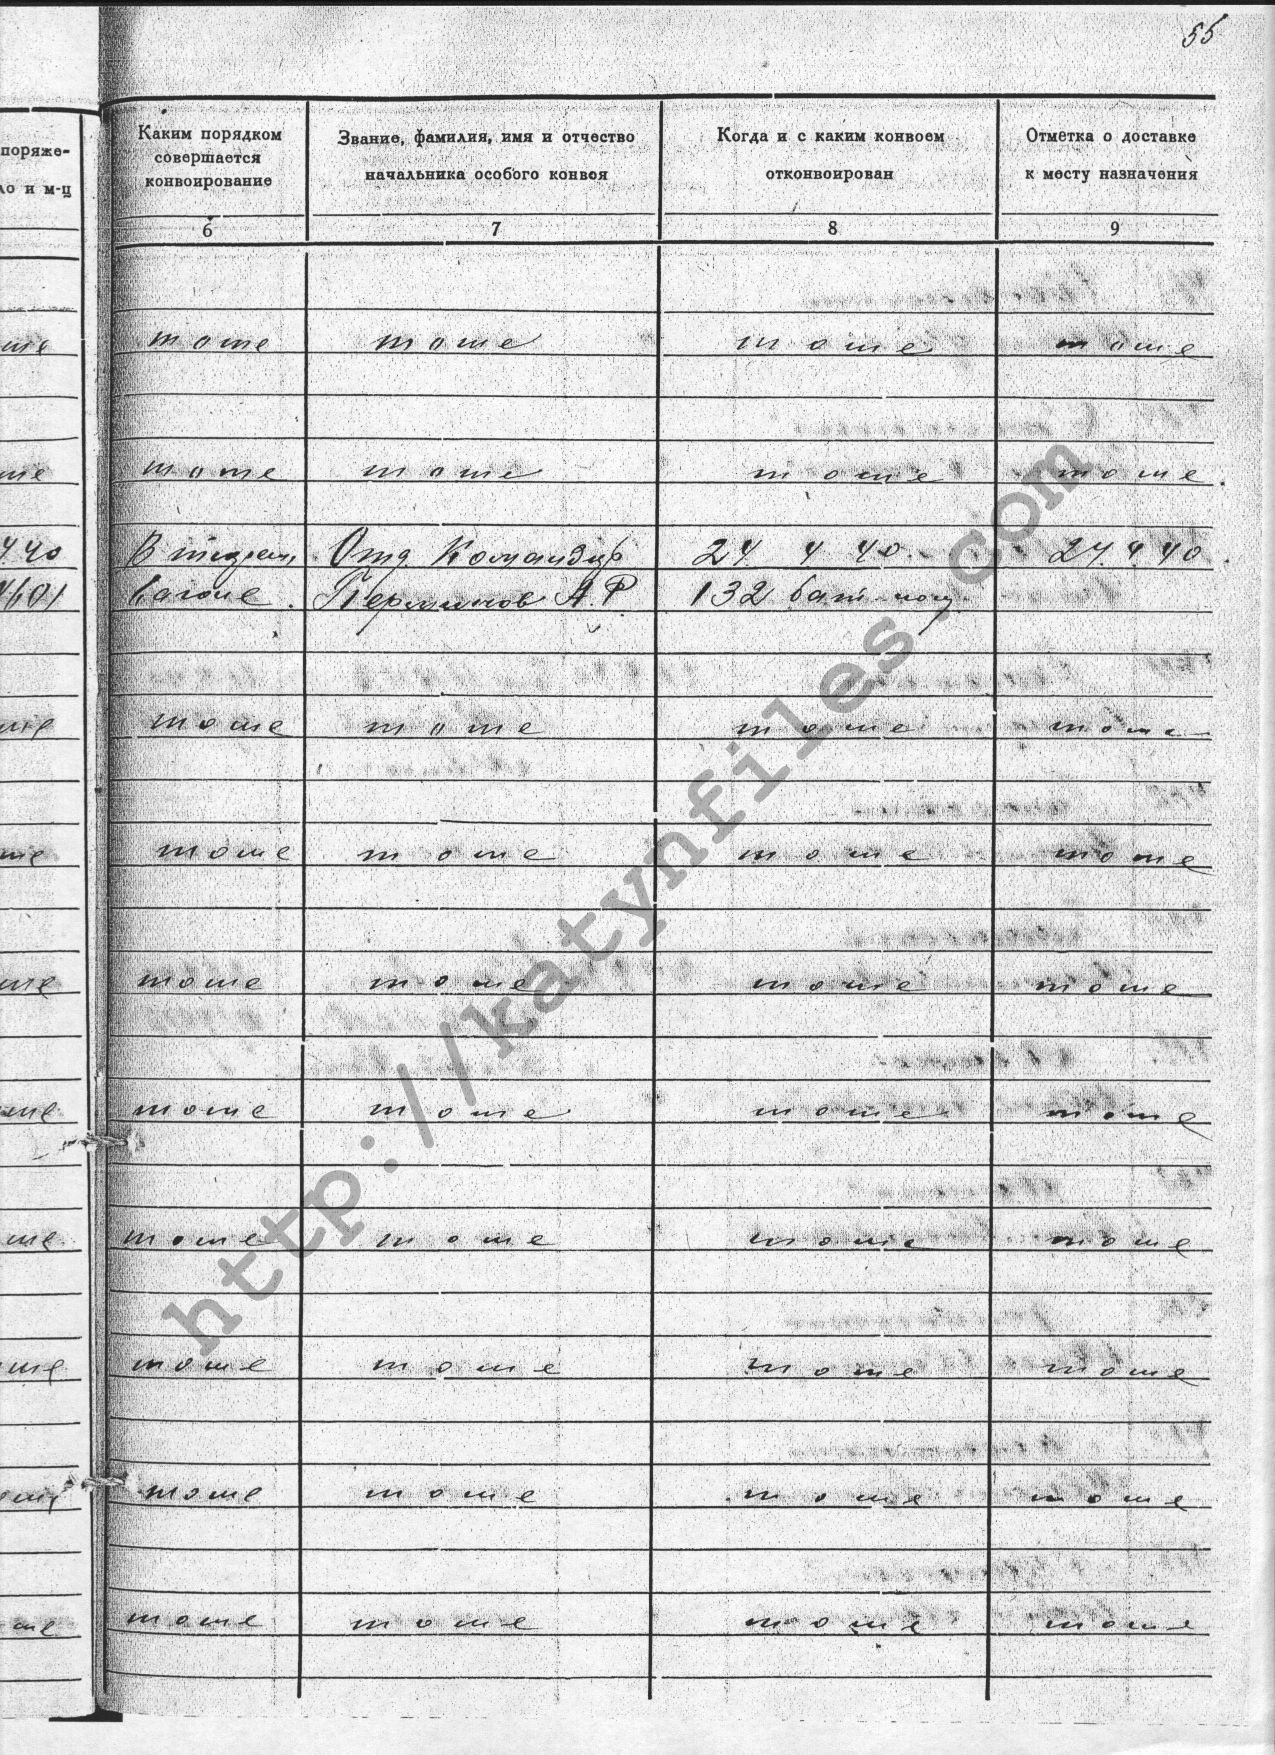 55
поряже-
ло и м-ц
Каким порядком
совершается
конвоирование
Звание, фамилия, имя и отчество
начальника особого конвоя
Когда и с каким конвоем
отконвоирован
Отметка о доставке
к месту назначения
6 7 8 9
тоже тоже тоже тоже
тоже тоже тоже тоже.
4.40 В тюрем. Отд. Командир 24 4 40. 24.4.40
вагоне. Перминов А.Р 132 бат.
тоже тоже тоже тоже
тоже тоже тоже тоже
тоже тоже тоже тоже
тоже тоже тоже тоже
тоже тоже тоже тоже
тоже тоже тоже тоже
тоже тоже тоже тоже
тоже тоже тоже тоже
http://katynfiles.com